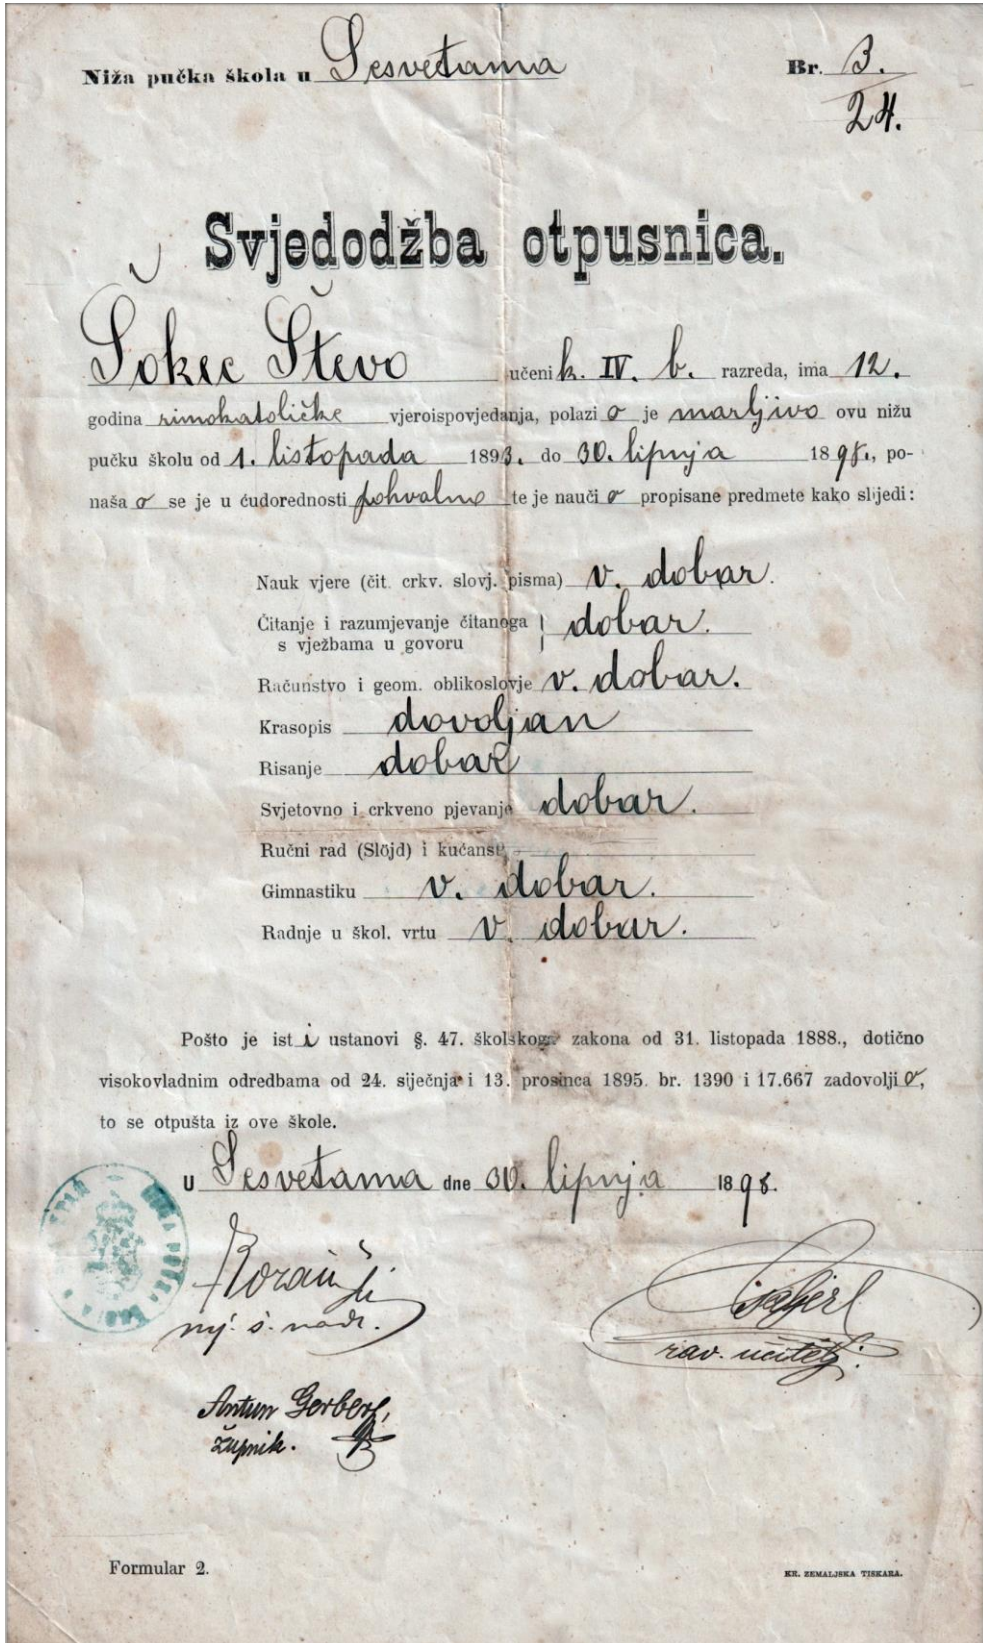 Niža pučka škola u Sesvetama Br. 3.
24.
Svjedodžba otpusnica.
Šokec Števo učenik. IV. b. razreda, ima 12.
godina rimokatoličke vjeroispovjedanja, polazio je marljivo ovu nižu
pučku školu od 1. listopada 1893. do 30. lipnja 1898., po-
našao se je u ćudorednosti pohvalno te je naučio propisane predmete kako slijedi:
Nauk vjere (čit. crkv. slovj. pisma) v. dobar.
Čitanje i razumjevanje čitanoga
s vježbama u govoru } dobar.
Računstvo i geom. oblikoslovje v. dobar.
Krasopis dovoljan
Risanje dobar
Svjetovno i crkveno pjevanje dobar.
Ručni rad (Slöjd) i kućanst.
Gimnastiku v. dobar.
Radnje u škol. vrtu v. dobar.
Pošto je isti ustanovi §. 47. školskoga zakona od 31. listopada 1888., dotično
visokovladnim odredbama od 24. siječnja i 13. prosinca 1895. br. 1390 i 17.667 zadovoljio,
to se otpušta iz ove škole.
U Sesvetama dne 30. lipnja 1898.
mj. š. nadz.
rav. učitelj.
Antun Gerbert,
župnik.
Formular 2. KR. ZEMALJSKA TISKARA.